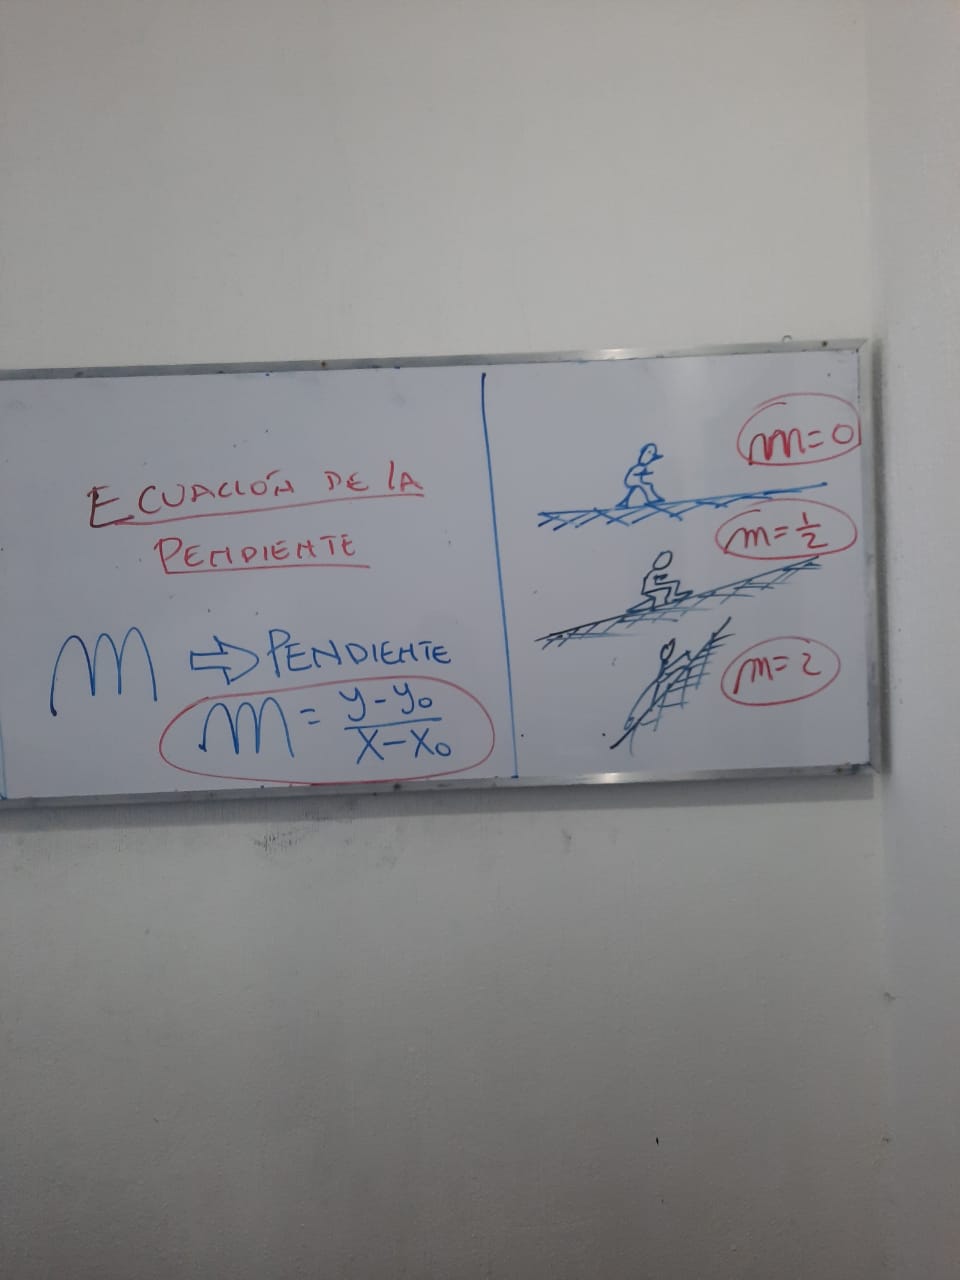 ECUACIÓN DE LA
PENDIENTE
m ⇨ PENDIENTE
m = y-y₀ / x-x₀
m=0
m=1/2
m=2